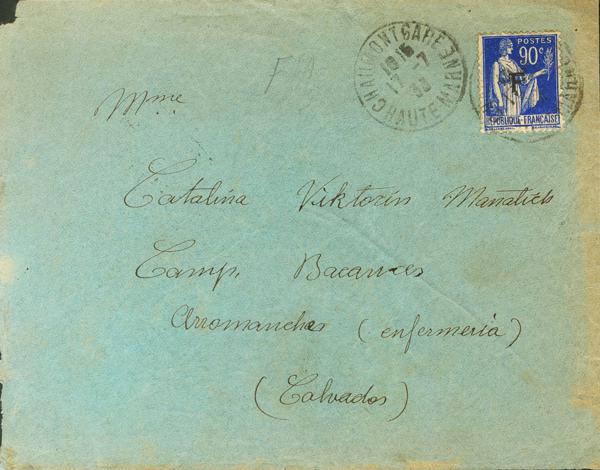 CHAUMONT GARE
18 15
17 -7
39
HAUTE MARNE
POSTES
90c
F
REPUBLIQUE FRANÇAISE
Mme
Catalina Viktorin
Camp.
Arromanches (enfermeria)
(Calvados)